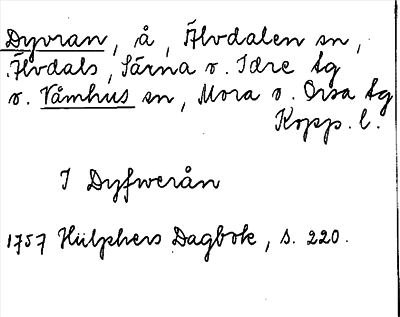 Dyvran, å, Älvdalen sn,
Älvdals, Särna o. Idre tg
o. Våmhus sn, Mora o. Orsa tg
Kopp. l.
I Dyfwerån
1757 Hülphers Dagbok, s. 220.